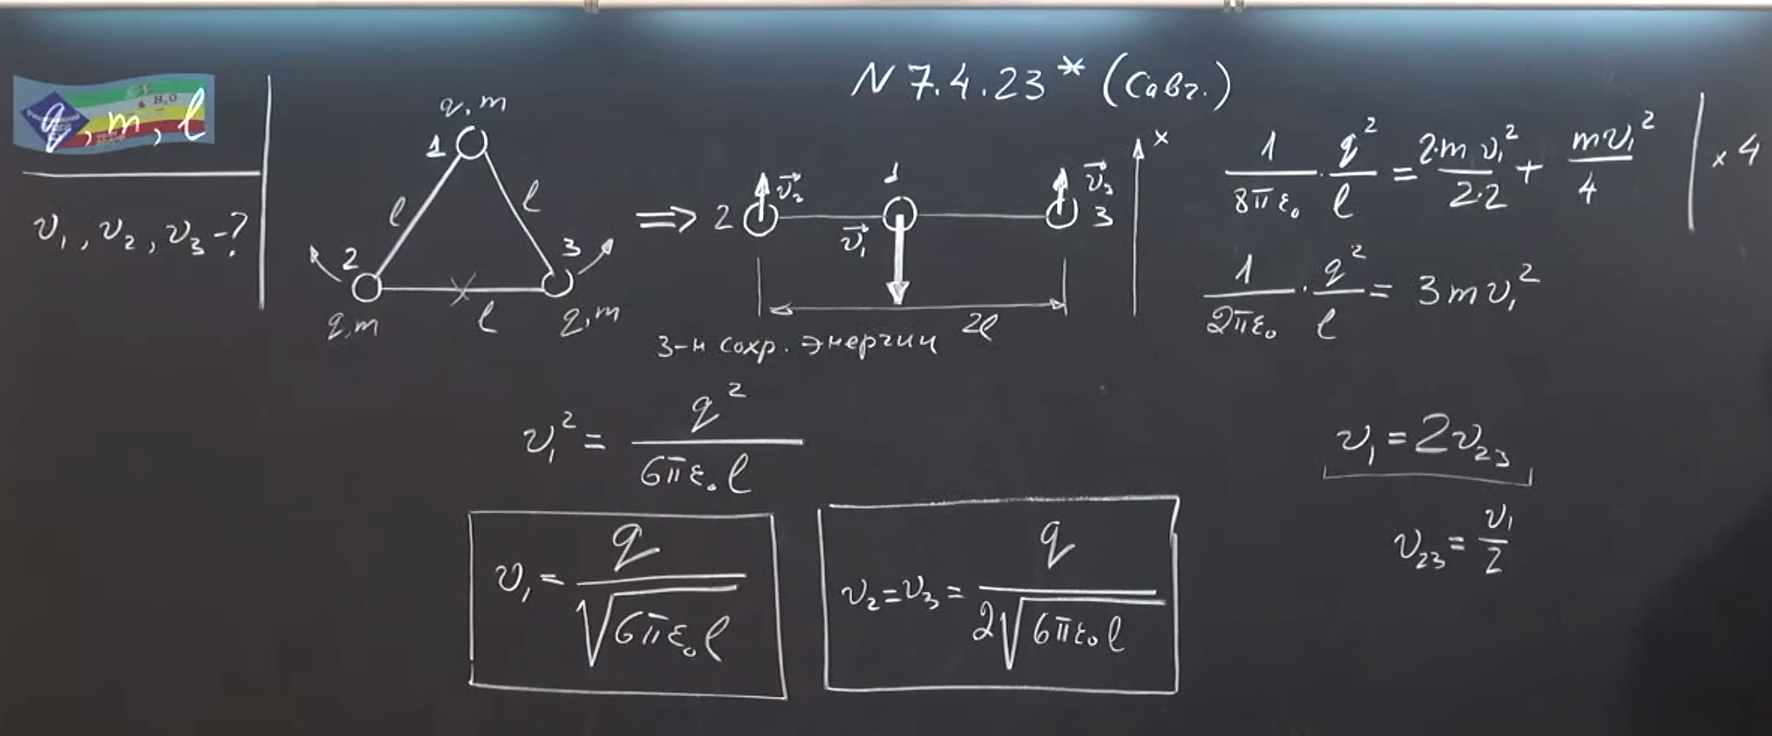 N 7.4.23* (Савч.)
q, m, l
v₁, v₂, v₃ -?
q, m
1
l
l
2
3
q, m
l
q, m
⇒
2
v⃗₂
1
v⃗₁
v⃗₃
3
x
2l
З-н сохр. энергии
1/(8πε₀) · q²/l = 2·m v₁²/(2·2) + mv₁²/4 | × 4
1/(2πε₀) · q²/l = 3mv₁²
v₁² = q²/(6πε₀l)
v₁ = 2v₂₃
v₂₃ = v₁/2
v₁ = q/√(6πε₀l)
v₂ = v₃ = q/(2√(6πε₀l))